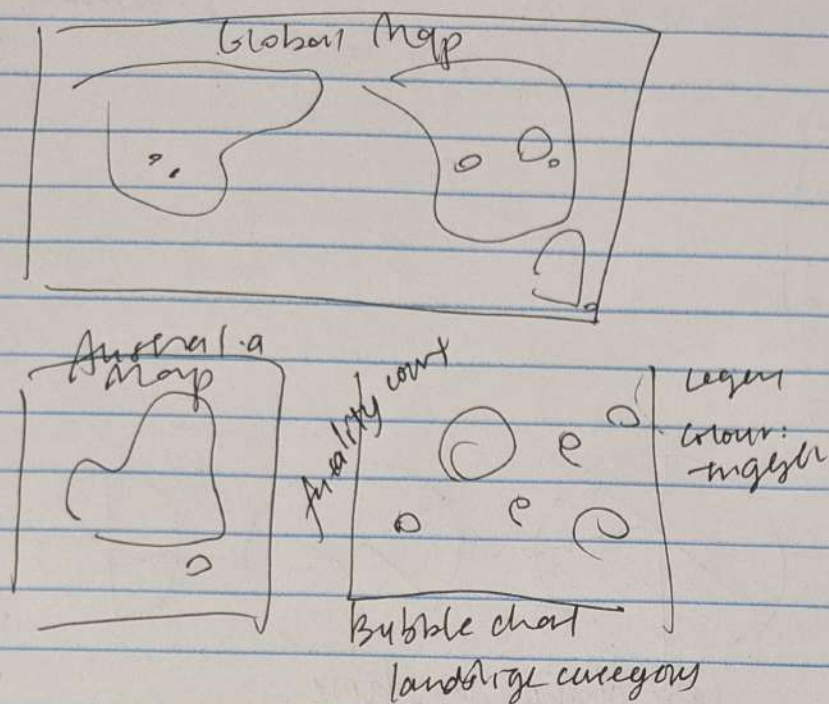 Global Map
Australia
Map
fatality count
Legen
colour:
trigger
Bubble chart
landslide category